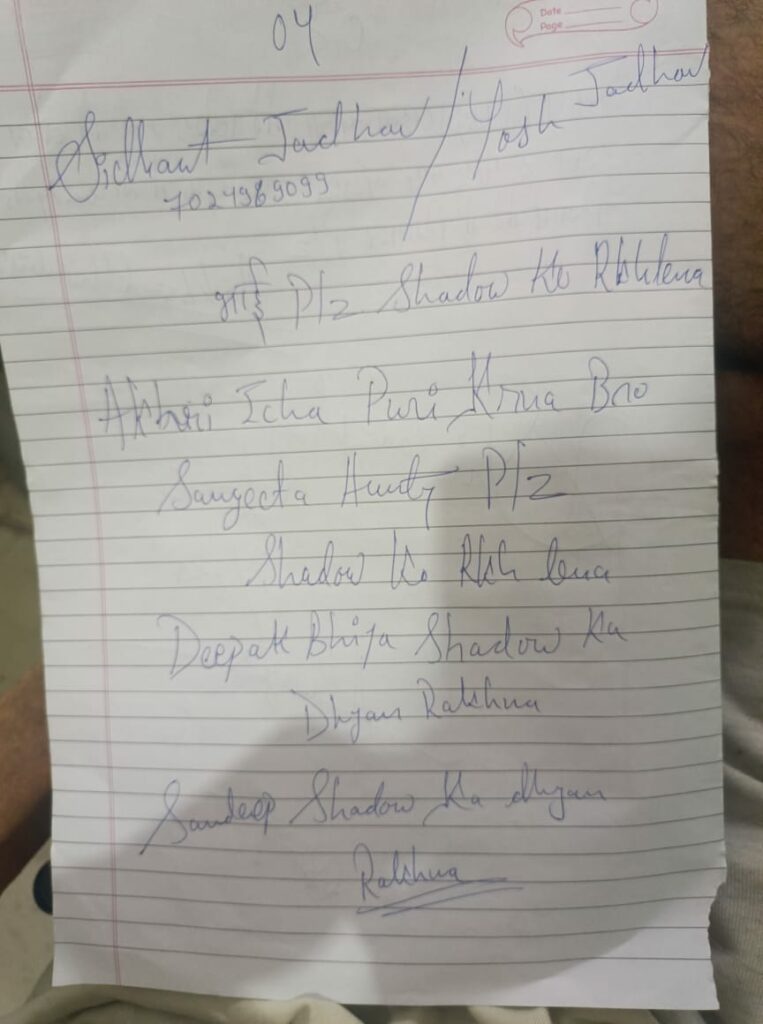 04
Date
Page
Sidhant Jadhav / Yosh Jadhav
7024989099
भाई Plz Shadow Ko Rkhlena
Akhri Icha Puri Krna Bro
Sangeeta Aunty Plz
Shadow Ko Rkh lena
Deepak Bhiya Shadow Ka
Dhyan Rakhna
Sandeep Shadow Ka dhyan
Rakhna